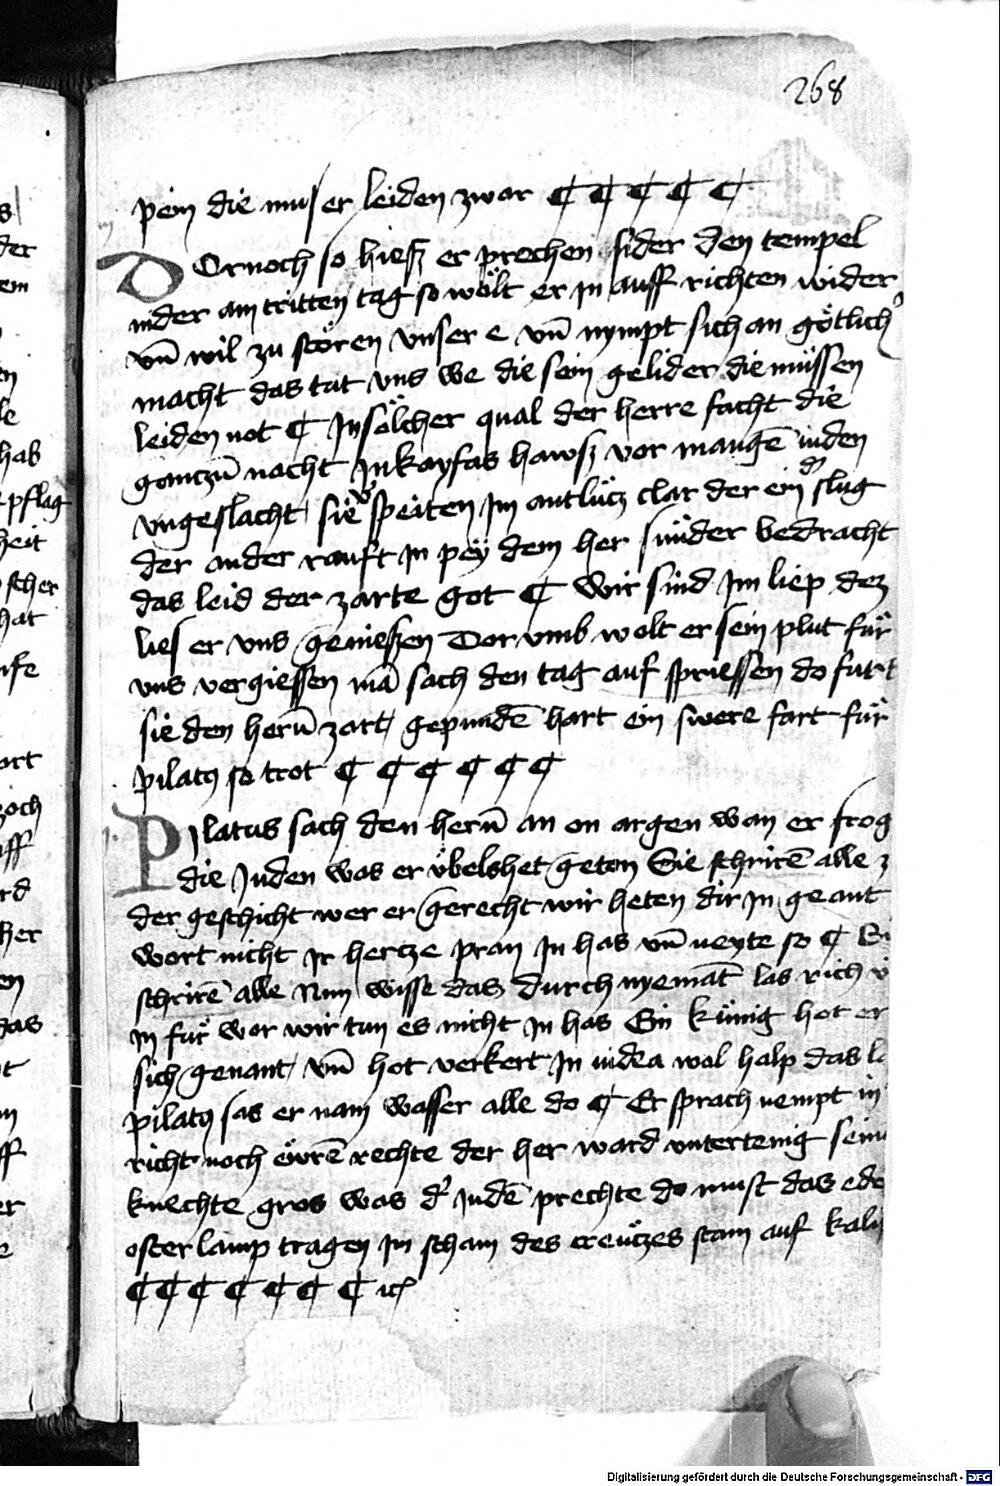 268
pein die mus er leiden zwar ¶ ¶ ¶ ¶ ¶
Dornoch so hiesz er prechen sider den tempel
nider am tritten tag so wölt er in auff richten wider
vn̄ wil zu stören vnser e vn̄ nympt sich an götlich
macht das tut vns we die sein gelider die müssen
leiden not ¶ In sölcher qual der herre facht die
ganczn̄ nacht in kayfas hawsz vor mangē iuden
vngeslacht sie speiten im antlücz clar der ein slug
der ander rauft in pey dem her sunder bedracht
das leid der zarte got ¶ Wir sind im liep dez
lies er vns genieszen Dor vmb wolt er sein plut für
vns vergiessen mā sach den tag auf spriessen do furt
sie den hern̄ zart gepundē hart ein swere fart für
pilatꝯ so trot ¶ ¶ ¶ ¶ ¶ ¶
Pilatus sach den hern̄ an on argen wan er frog
die Juden was er übels het geton Sie schrirē alle z
der geschicht wer er gerecht wir heten dir in geant
wort nicht ir hertze pran in has vn̄ neyte so ¶ Si
schrirē alle Nun wisse das durch nyemāt las rich
in für wor wir tun es nicht in has Ein künig hot er
sich genant vn̄ hot verkert in iudea wol halp das l
pilatꝯ sas er nam wasser alle do ¶ Er sprach nempt in
richt noch ewrē rechte der her ward vntertenig sein
knechte gros was dʼ Judē prechte do must das ede
oster lamp tragen in scham des creützes stam auf kal
¶ ¶ ¶ ¶ ¶ ¶ ¶
Digitalisierung gefördert durch die Deutsche Forschungsgemeinschaft - DFG